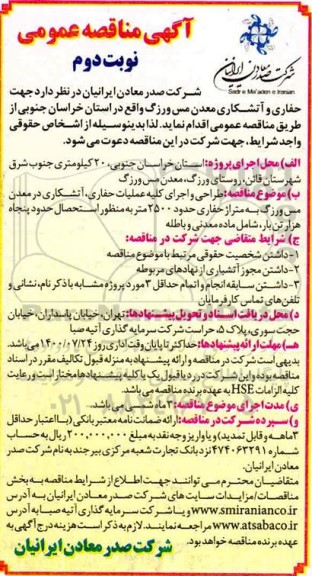 آگهی مناقصه عمومی
نوبت دوم
شرکت صدر معادن ایرانیان
Sadr e Ma'aden e Iranian
شرکت صدر معادن ایرانیان در نظر دارد جهت
حفاری و آتشکاری معدن مس ورزگ واقع در استان خراسان جنوبی از
طریق مناقصه عمومی اقدام نماید. لذا بدینوسیله از اشخاص حقوقی
واجد شرایط، جهت شرکت در این مناقصه دعوت می شود.
الف) محل اجرای پروژه: استان خراسان جنوبی، ۲۰ کیلومتری جنوب شرق
شهرستان قائن، روستای ورزگ، معدن مس ورزگ
ب) موضوع مناقصه: طراحی و اجرای کلیه عملیات حفاری، آتشکاری در معدن
مس ورزگ به متراژ حفاری حدود ۲۵۰۰ متر به منظور استحصال حدود پنجاه
هزار تن بار، شامل ماده معدنی و باطله
ج) شرایط متقاضی جهت شرکت در مناقصه:
۱-داشتن شخصیت حقوقی مرتبط با موضوع مناقصه
۲-داشتن مجوز آتشباری از نهادهای مربوطه
۳-داشتن سابقه انجام و اتمام حداقل ۳ مورد پروژه مشابه با ذکر نام، نشانی و
تلفن های تماس کارفرمایان
د) محل دریافت اسناد و تحویل پیشنهادها: تهران، خیابان پاسداران، خیابان
حجت سوری، پلاک ۵، حراست شرکت سرمایه گذاری آتیه صبا
هـ) مهلت ارائه پیشنهادها: حداکثر تا پایان وقت اداری روز ۱۴۰۰/۰۷/۲۴ می باشد.
بدیهی است شرکت در مناقصه و ارائه پیشنهاد به منزله قبول تکالیف مقرر در اسناد
مناقصه بوده و این شرکت در رد یا قبول یک یا کلیه پیشنهادها مختار است و رعایت
کلیه الزامات HSE به عهده برنده مناقصه می باشد.
ی) مدت اجرای موضوع مناقصه: ۳ ماه شمسی می باشد.
و) سپرده شرکت در مناقصه: ارائه ضمانت نامه معتبر بانکی (با اعتبار حداقل
۳ ماهه و قابل تمدید) و یا واریز وجه نقد به مبلغ ۲۰۰,۰۰۰,۰۰۰ ریال به حساب
شماره ۴۷۴۰۶۳۲۹۱ نزد بانک تجارت شعبه مرکزی بیرجند به نام شرکت صدر
معادن ایرانیان.
متقاضیان محترم می توانند جهت اطلاع از شرایط مناقصه به بخش
مناقصات/مزایدات سایت های شرکت صدر معادن ایرانیان به آدرس
www.smiranian.co و یا شرکت سرمایه گذاری آتیه صبا به آدرس
www.atsabaco.ir مراجعه نمایند. لازم به ذکر است هزینه درج آگهی به
عهده برنده مناقصه خواهد بود.
شرکت صدر معادن ایرانیان